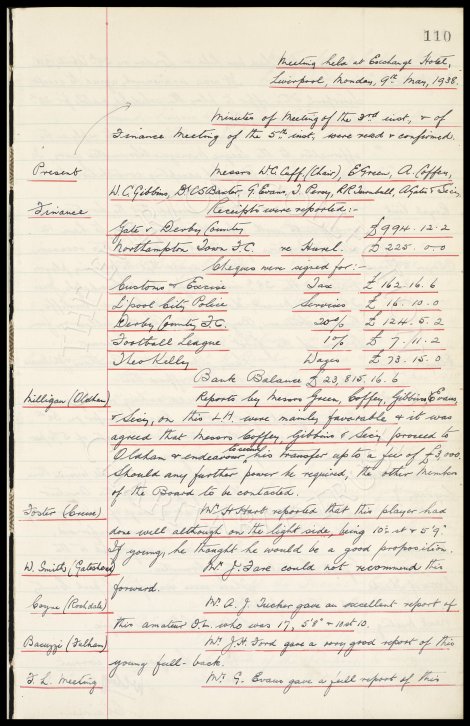 110
Meeting held at Exchange Hotel,
Liverpool, Monday, 9th May, 1938.
Minutes of Meeting of the 3rd inst, & of
Finance Meeting of the 5th inst, were read & confirmed.
Present Messrs W.C. Cuff, (Chair), E. Green, A. Coffey,
W.C. Gibbins, Dr C.S. Baxter, G. Evans, T. Percy, R.R. Turnbull, A. Gates & Secy.
Finance Receipts were reported:-
Gate v Derby County £994.12.2
Northampton Town F.C. re Hurel. £225.0.0
Cheques were signed for:-
Customs & Excise Tax £162.16.6
L'pool City Police Services £16.10.0
Derby County F.C. 20% £124.5.2
Football League 1% £7.11.2
Theo Kelly Wages £73.15.0
Bank Balance £23,815.16.6
Milligan (Oldham) Reports by Messrs Green, Coffey, Gibbins Evans,
& Secy, on this L.H. were mainly favorable & it was
agreed that Messrs Coffey, Gibbins & Secy proceed to
Oldham & endeavour to secure his transfer up to a fee of £3,000.
Should any further power be required, the other members
of the Board to be contacted.
Foster (Crewe) Mr H. Hart reported that this player had
done well although on the light side, being 10st & 5'9"
If young, he thought he would be a good proposition.
W. Smith (Gateshead) Mr J. Fare could not recommend this
forward.
Coyne (Rochdale) Mr A.J. Tucker gave an excellent report of
this amateur I.L. who was 17, 5'8" & 11st 10.
Bacuzzi (Fulham) Mr J.H. Ford gave a very good report of this
young full-back.
F.L. Meeting Mr G. Evans gave a full report of this